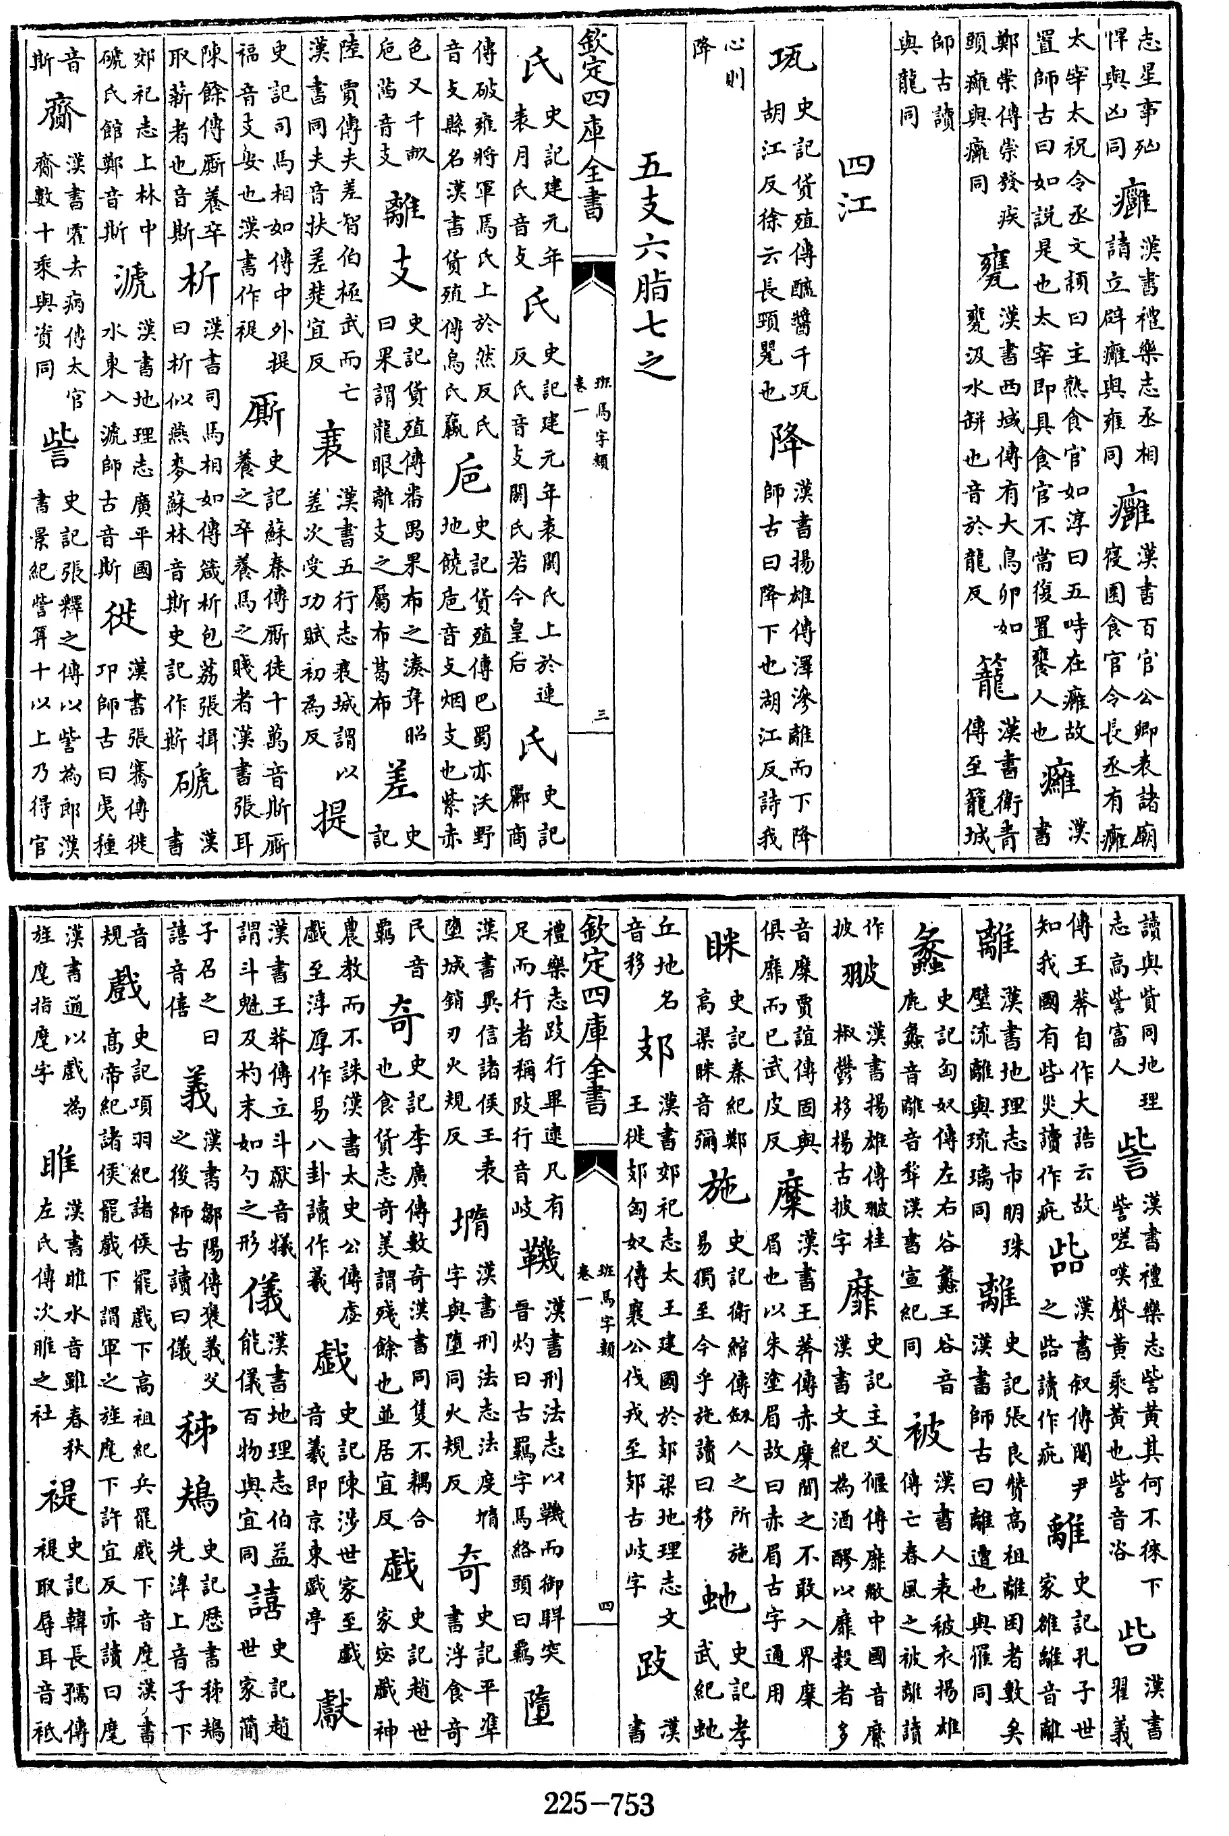 志星事㐫悍與凶同癰漢書禮樂志丞相請立辟癰與雍同癰漢書百官公卿表諸廟寑園食官令長丞有癰
太宰太祝令丞文頴曰主熟食官如淳曰五畤在癰故置師古曰如説是也太宰即具食官不當復置饔人也癰漢書
鄭崇傳崇發疾頸癰與癰同甕漢書西域傳有大鳥卵如甕甕汲水缾也音於龍反籠漢書衛青傳至籠城
師古讀與龍同
四江
瓨史記貨殖傳醯醬千瓨胡江反徐云長頸甖也降漢書揚雄傳澤滲離而下降師古曰降下也湖江反詩我
心則降
五支六脂七之
欽定四庫全書 班馬字類 卷一 三
氏史記建元年表月氏音支氏史記建元年表閼氏上於連反氏音支閼氏若今皇后氏史記酈商
傳破雍將軍焉氏上於然反氏音支縣名漢書貨殖傳烏氏羸巵史記貨殖傳巴蜀亦沃野地饒巵音支烟支也紫赤
色又千畝巵茜音支離支史記貨殖傳番禺果布之湊韋昭曰果謂龍眼離支之屬布葛布差史記
陸賈傳夫差智伯極武而亡漢書同夫音扶差楚宜反衰漢書五行志衰城謂以差次受功賦初為反提
史記司馬相如傳中外提福音支安也漢書作禔厮史記蘇秦傳厮徒十萬音斯厮養之卒養馬之賤者漢書張耳
陳餘傳厮養卒取薪者也音斯析漢書司馬相如傳葴析包荔張揖曰析似燕麥蘇林音斯史記作蔪磃漢書
郊祀志上林中磃氏館鄭音斯㴲漢書地理志廣平國㴲水東入㴲師古音斯徙漢書張騫傳徙卭師古曰夷種
音斯齎漢書霍去病傳太官齎數十乘與資同訾史記張釋之傳以訾為郎漢書景紀訾算十以上乃得官
讀與貲同地理志高訾富人訾漢書禮樂志訾黄其何不徠下訾嗟嘆聲黄乘黄也訾音咨呰漢書翟義
傳王莽自作大誥云故知我國有呰災讀作疵㽂漢書叙傳閽尹之呰讀作疵離史記孔子世家雒離音離
離漢書地理志市明珠璧流離與琉璃同離史記張良贊高祖離困者數矣漢書師古曰離遭也與罹同
蠡史記匈奴傳左右谷蠡王谷音鹿蠡音離音犂漢書宣紀同被漢書人表被衣揚雄傳亡春風之被離讀
作披翍漢書揚雄傳翍桂椒鬱栘楊古披字靡史記主父偃傳靡敝中國音糜漢書文紀為酒醪以靡穀者多
音糜賈誼傳固與俱靡而已武皮反糜漢書王莽傳赤糜聞之不敢入界糜眉也以朱塗眉故曰赤眉古字通用
眯史記秦紀鄭高渠眯音彌施史記衛綰傳劔人之所施易獨至今乎施讀曰移虵史記孝武紀虵
丘地名音移郂漢書郊祀志太王建國於郂梁地理志文王徙郂匈奴傳襄公伐戎至郂古岐字跂漢書
欽定四庫全書 班馬字類 卷一 四
禮樂志跂行畢逮凡有足而行者稱跂行音岐鞿漢書刑法志以鞿而御駻突晉灼曰古羈字馬絡頭曰羈墮
漢書異信諸侯王表墮城銷刃火規反墯漢書刑法志法度墯字與墮同火規反奇史記平準書浮食奇
民音羈奇史記李廣傳數奇漢書同隻不耦合也食貨志奇羨謂殘餘也並居宜反戲史記趙世家宓戲神
農教而不誅漢書太史公傳虙戲至淳厚作易八卦讀作羲戲史記陳涉世家至戲音羲即京東戲亭獻
漢書王莽傳立斗獻音犧謂斗魁及杓末如勺之形儀漢書地理志伯益能儀百物與宜同譆史記趙世家簡
子召之曰譆音僖義漢書鄒陽傳褒義父之後師古讀曰儀秭鳺史記歴書秭鳺先滜上音子下
音規戲史記項羽紀諸侯罷戲下高祖紀兵罷戲下音麾漢書高帝紀諸侯罷戲下謂軍之旌麾下許宜反亦讀曰麾
漢書通以戲為旌麾指麾字睢漢書睢水音雖春秋左氏傳次睢之社褆史記韓長孺傳褆取辱耳音祇
225-753